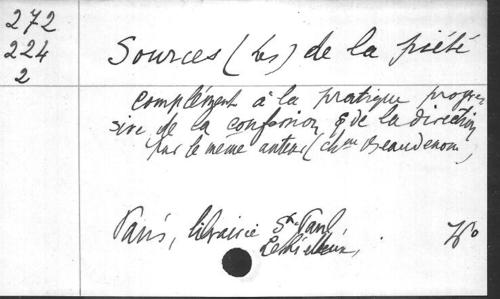 272
224
2
Sources (les) de la piété
complément à la pratique progres
sive de la confession & de la direction
par le meme auteur (chne Beaudenom)
Paris, librairie St Paul,
Lethielleux,